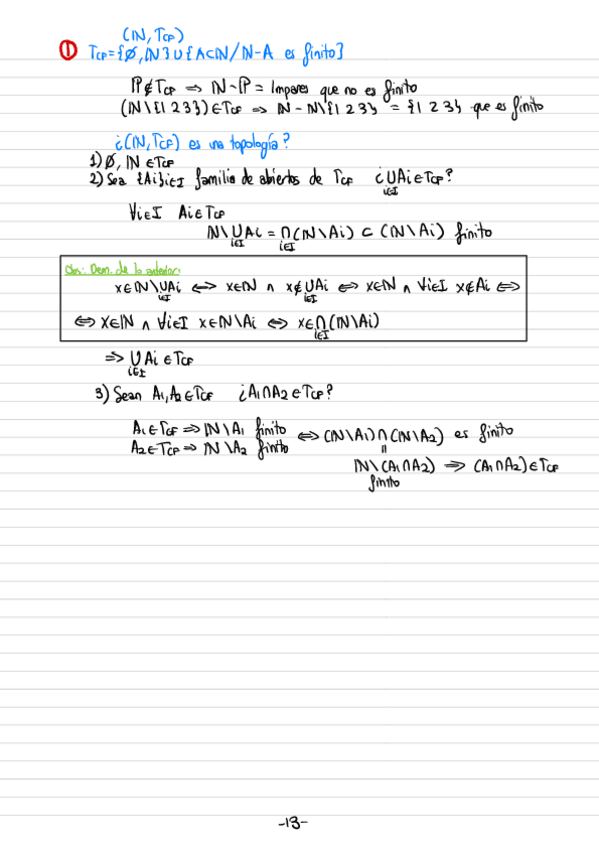 (ℕ, Tcf)
① Tcf = {∅, ℕ} ∪ {A⊂ℕ / ℕ-A es finito}
ℙ ∉ Tcf ⇒ ℕ-ℙ = Impares que no es finito
(ℕ\{1 2 3}) ∈ Tcf ⇒ ℕ - ℕ\{1 2 3} = {1 2 3} que es finito
¿(ℕ, Tcf) es una topología?
1) ∅, ℕ ∈ Tcf
2) Sea {Ai}i∈I familia de abiertos de Tcf ¿∪Ai ∈ Tcf?
i∈I
∀i∈I Ai ∈ Tcf
ℕ\∪Ai = ∩(ℕ\Ai) ⊂ (ℕ\Ai) finito
i∈I i∈I
Obs: Dem. de lo anterior:
x∈ℕ\∪Ai ⟺ x∈ℕ ∧ x∉∪Ai ⟺ x∈ℕ ∧ ∀i∈I x∉Ai ⟺
i∈I i∈I
⟺ x∈ℕ ∧ ∀i∈I x∈ℕ\Ai ⟺ x∈∩(ℕ\Ai)
i∈I
⇒ ∪Ai ∈ Tcf
i∈I
3) Sean A1, A2 ∈ Tcf ¿A1∩A2 ∈ Tcf?
A1 ∈ Tcf ⇒ ℕ\A1 finito ⟺ (ℕ\A1)∩(ℕ\A2) es finito
A2 ∈ Tcf ⇒ ℕ\A2 finito
=
ℕ\(A1∩A2) ⇒ (A1∩A2) ∈ Tcf
finito
-13-